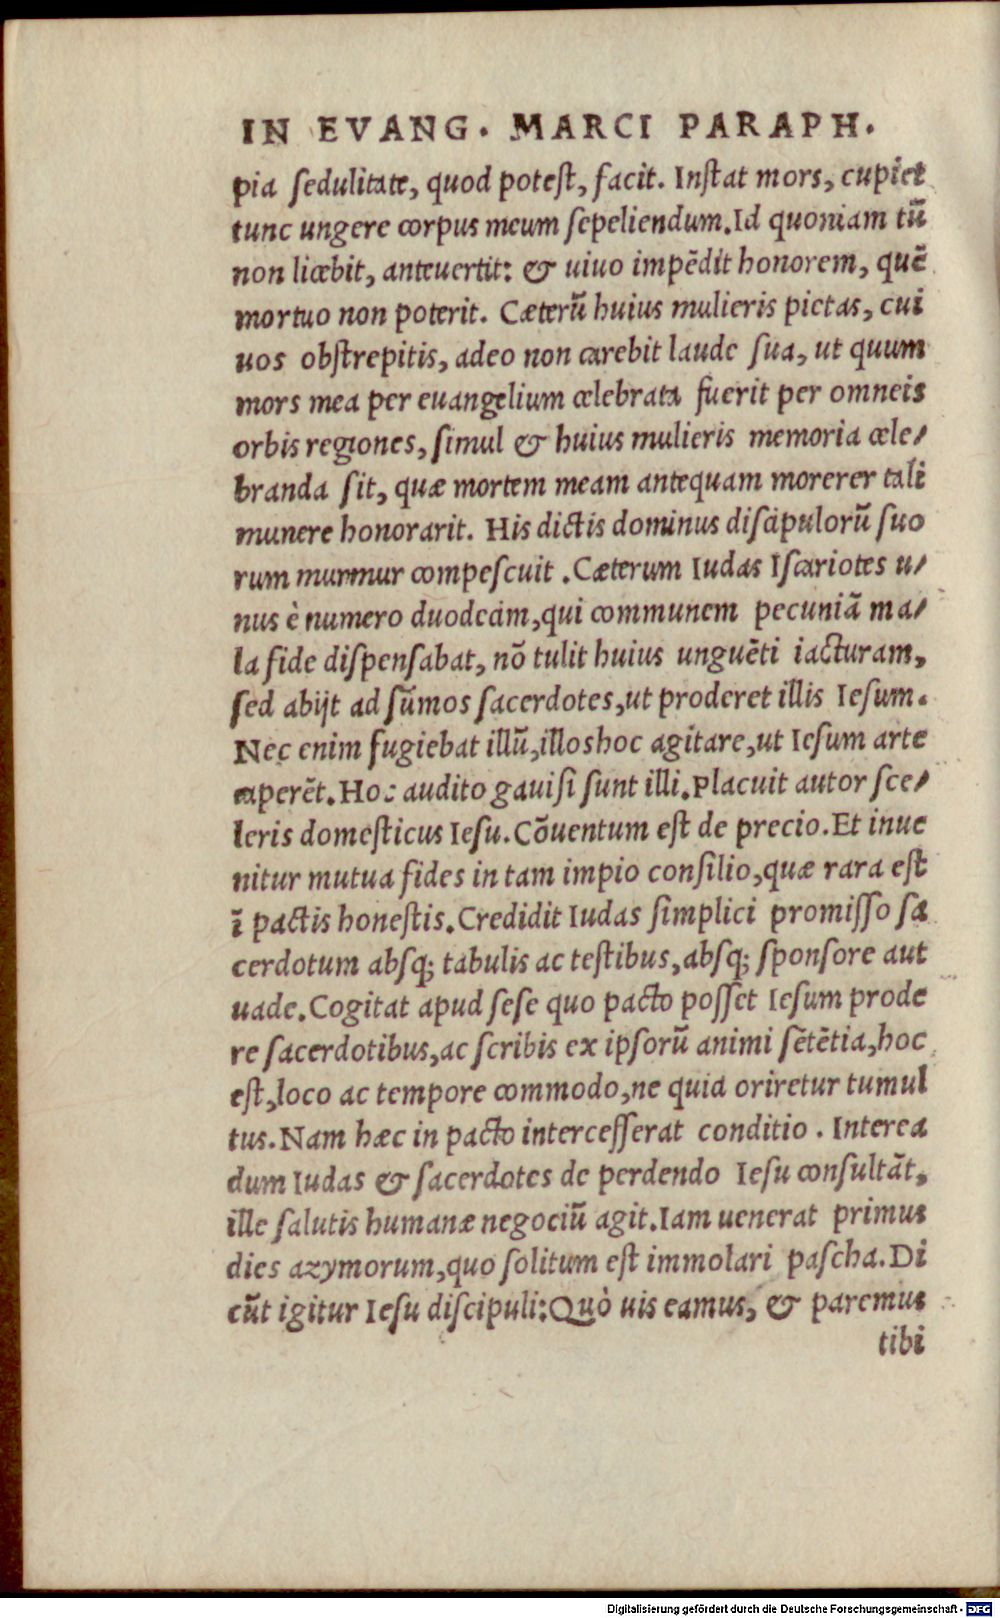 IN EVANG. MARCI PARAPH.
pia ſedulitate, quod poteſt, facit. Inſtat mors, cupiet
tunc ungere corpus meum ſepeliendum. Id quoniam tũ
non licebit, anteuertit: & uiuo impẽdit honorem, quẽ
mortuo non poterit. Cæterũ huius mulieris pietas, cui
uos obſtrepitis, adeo non carebit laude ſua, ut quum
mors mea per euangelium celebrata fuerit per omneis
orbis regiones, ſimul & huius mulieris memoria cele/
branda ſit, quæ mortem meam antequam morerer tali
munere honorarit. His dictis dominus diſcipulorũ ſuo
rum murmur compeſcuit. Cæterum Iudas Iſcariotes u/
nus è numero duodecim, qui communem pecuniã ma/
la fide diſpenſabat, nõ tulit huius unguẽti iacturam,
ſed abijt ad ſũmos ſacerdotes, ut proderet illis Ieſum.
Nec enim fugiebat illũ, illos hoc agitare, ut Ieſum arte
caperẽt. Hoc audito gauiſi ſunt illi. Placuit autor ſce/
leris domeſticus Ieſu. Cõuentum eſt de precio. Et inue
nitur mutua fides in tam impio conſilio, quæ rara eſt
ĩ pactis honeſtis. Credidit Iudas ſimplici promiſſo ſa
cerdotum abſq; tabulis ac teſtibus, abſq; ſponſore aut
uade. Cogitat apud ſeſe quo pacto poſſet Ieſum prode
re ſacerdotibus, ac ſcribis ex ipſorũ animi ſẽtẽtia, hoc
eſt, loco ac tempore commodo, ne quid oriretur tumul
tus. Nam hæc in pacto interceſſerat conditio. Interea
dum Iudas & ſacerdotes de perdendo Ieſu conſultãt,
ille ſalutis humanæ negociũ agit. Iam uenerat primus
dies azymorum, quo ſolitum eſt immolari paſcha. Di
cũt igitur Ieſu diſcipuli: Quò uis eamus, & paremus
tibi
Digitalisierung gefördert durch die Deutsche Forschungsgemeinschaft - DFG